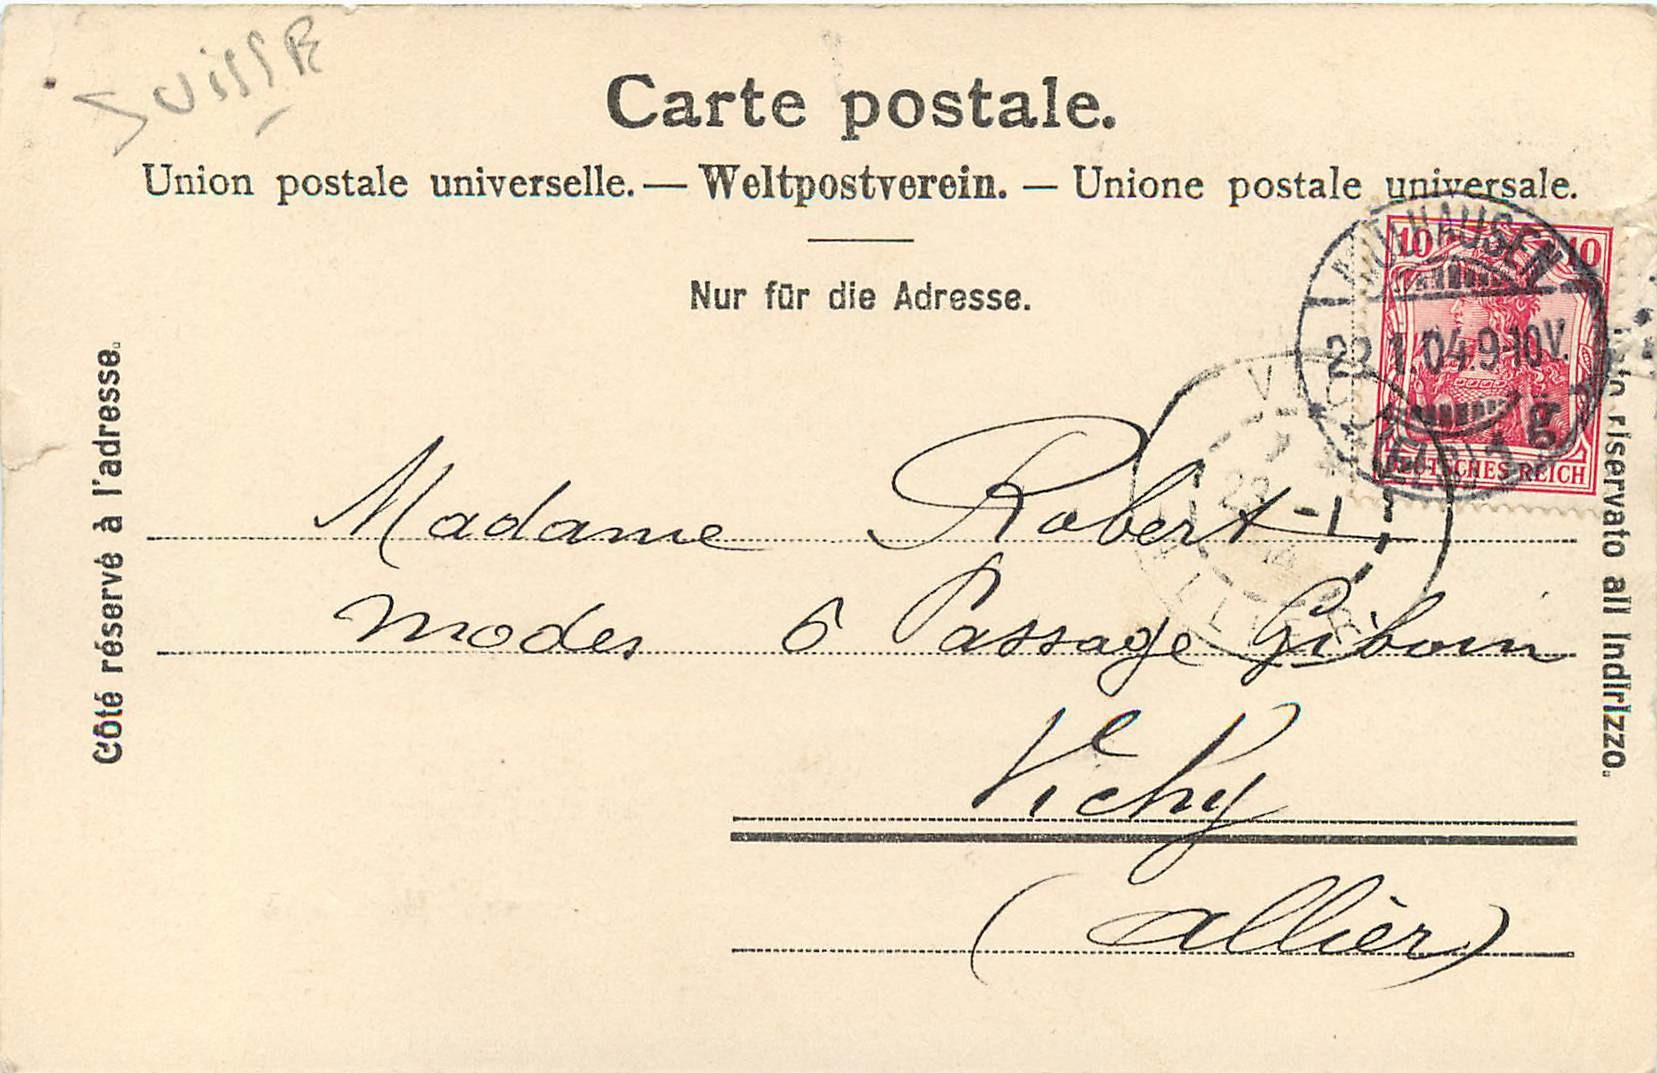 SUISSE
Carte postale.
Union postale universelle. — Weltpostverein. — Unione postale universale.
Nur für die Adresse.
Côté réservé à l'adresse.
riservato all Indirizzo.
10 10
DEUTSCHES REICH
MÜLHAUSEN
22.1.04.9-10V.
(ELS.) g
Madame Robert
modes 6 Passage Giboin
Vichy
(Allier)